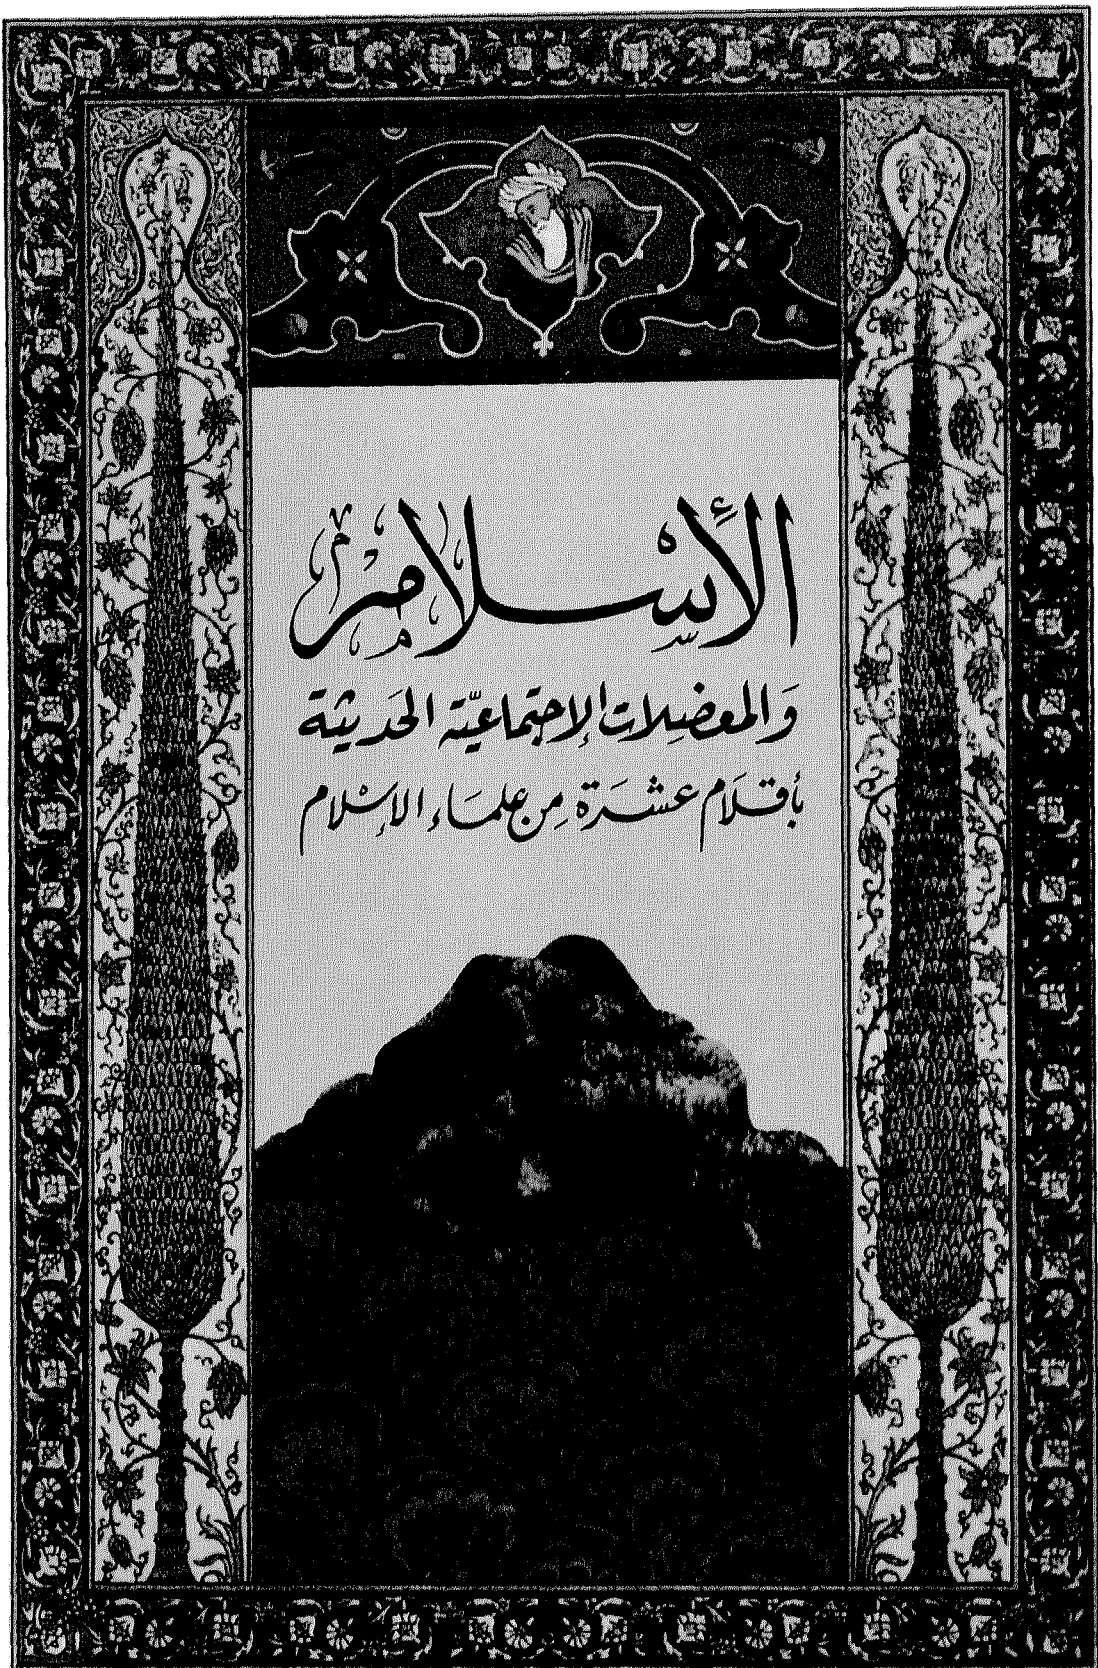 الإسلام
وَالمعضِلات الإجتماعيّة الحَديثة
بأقلَام عشَرَة مِن علمَاء الإسْلام